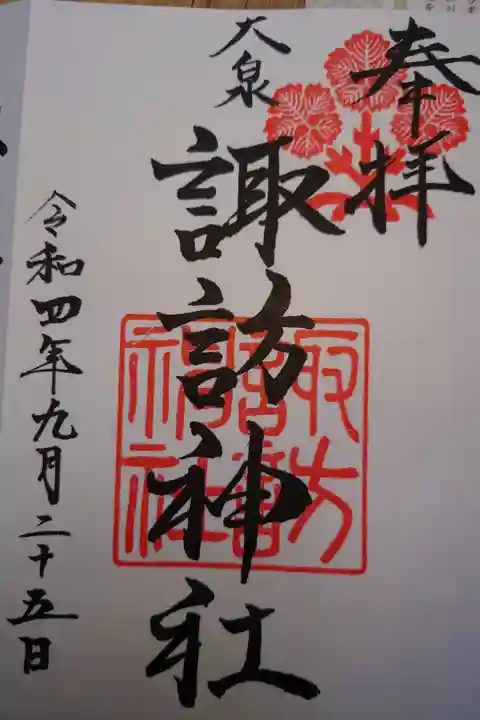 奉拝
大泉
諏訪神社
諏訪神社
令和四年九月二十五日